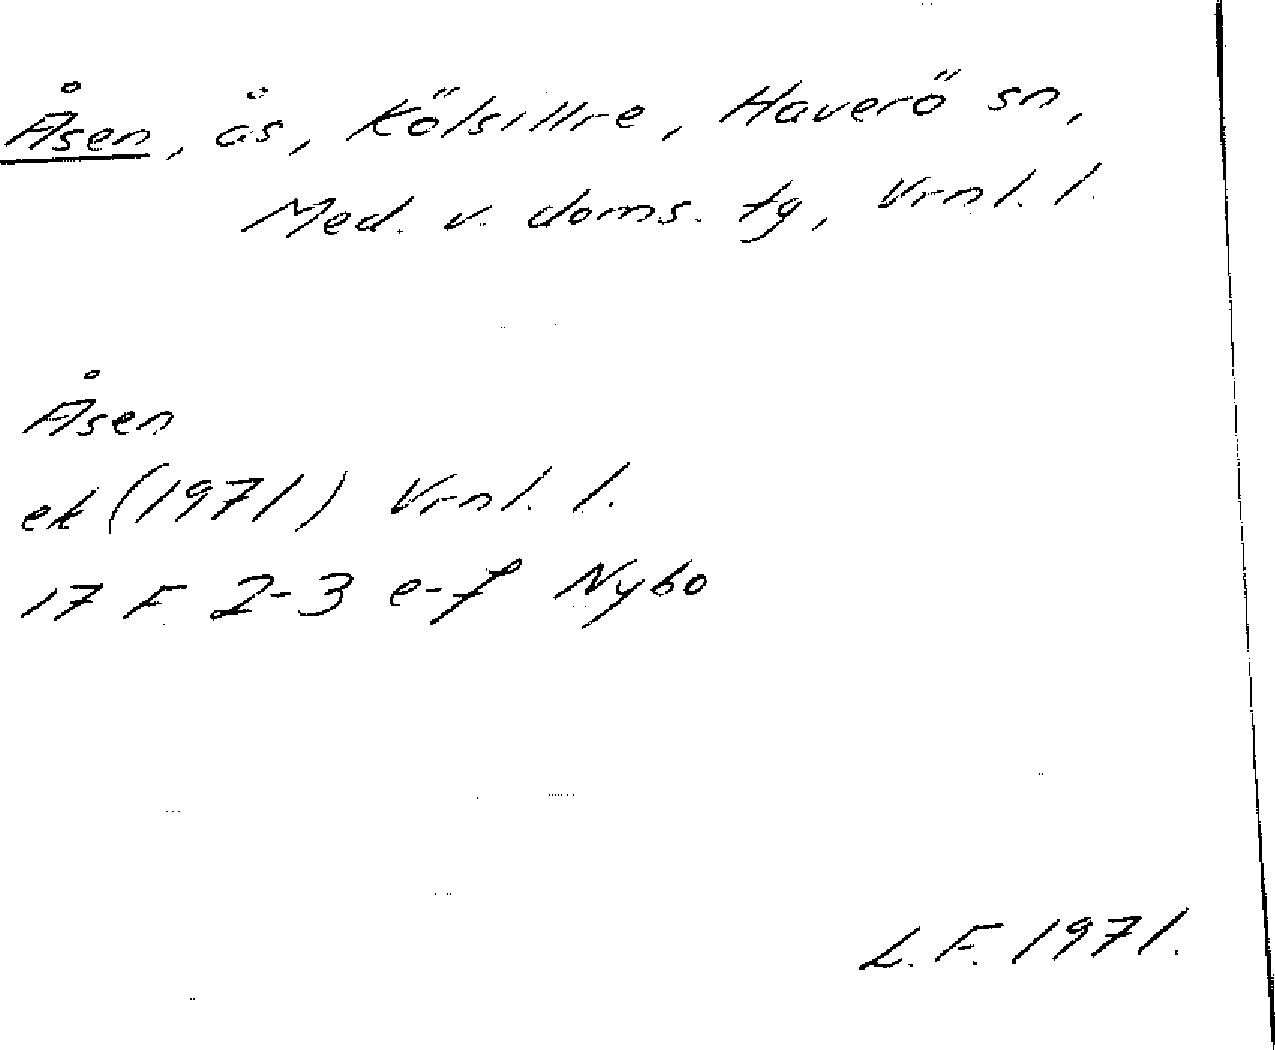 Åsen, ås, Kölsillre, Haverö sn,
Med. v. doms. tg, Vrnl. l.
Åsen
ek (1971) Vrnl. l.
17 F 2-3 e-f Nybo
L. F. 1971.